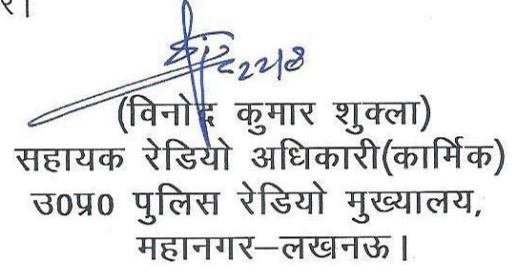 र।
22/8
(विनोद कुमार शुक्ला)
सहायक रेडियो अधिकारी(कार्मिक)
उ0प्र0 पुलिस रेडियो मुख्यालय,
महानगर–लखनऊ।